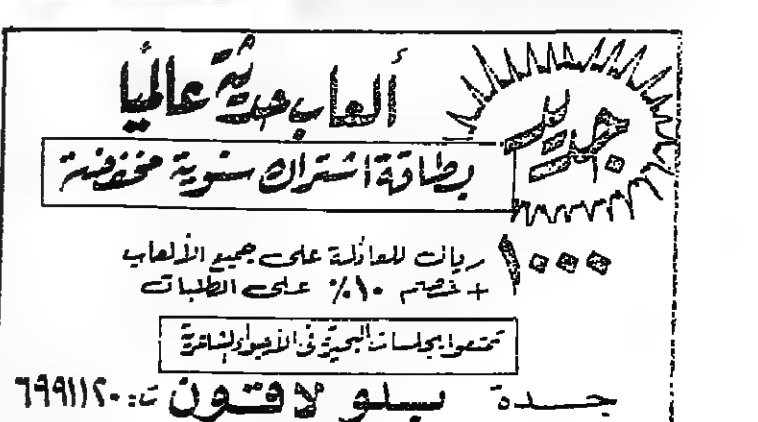 جديد
ألعاب حديثة عالميًا
بطاقة اشتراك سنوية مخفضة
١٠٠٠ ريال للعائلة على جميع الألعاب
+ خصم ١٠٪ على الطلبات
تمتعوا بجلسات البحيرة في الأجواء الشاعرية
جدة بيلو لاقون ت: ٦٩٩١١٢٠